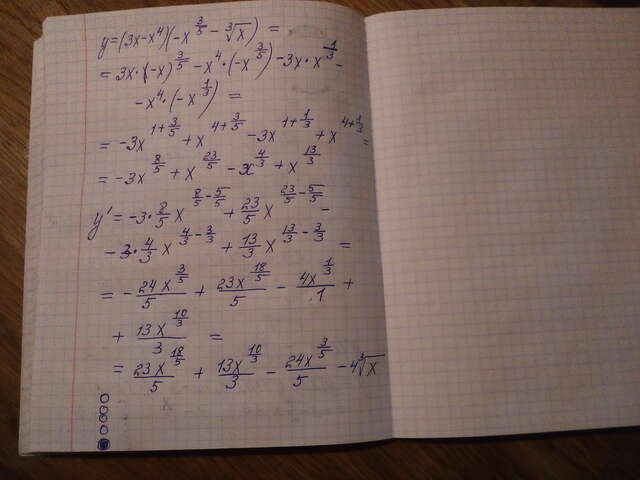 y=(3x-x⁴)(-x^(3/5) - ∛x) =
= 3x·(-x)^(3/5) - x⁴·(-x^(3/5)) - 3x·x^(1/3) -
- x⁴·(-x^(1/3)) =
= -3x^(1+3/5) + x^(4+3/5) - 3x^(1+1/3) + x^(4+1/3) =
= -3x^(8/5) + x^(23/5) - x^(4/3) + x^(13/3)
y' = -3·8/5 x^(8/5-5/5) + 23/5 x^(23/5-5/5) -
- 3·4/3 x^(4/3-3/3) + 13/3 x^(13/3-3/3) =
= - 24x^(3/5)/5 + 23x^(18/5)/5 - 4x^(1/3)/1 +
+ 13x^(10/3)/3 =
= 23x^(18/5)/5 + 13x^(10/3)/3 - 24x^(3/5)/5 - 4∛x